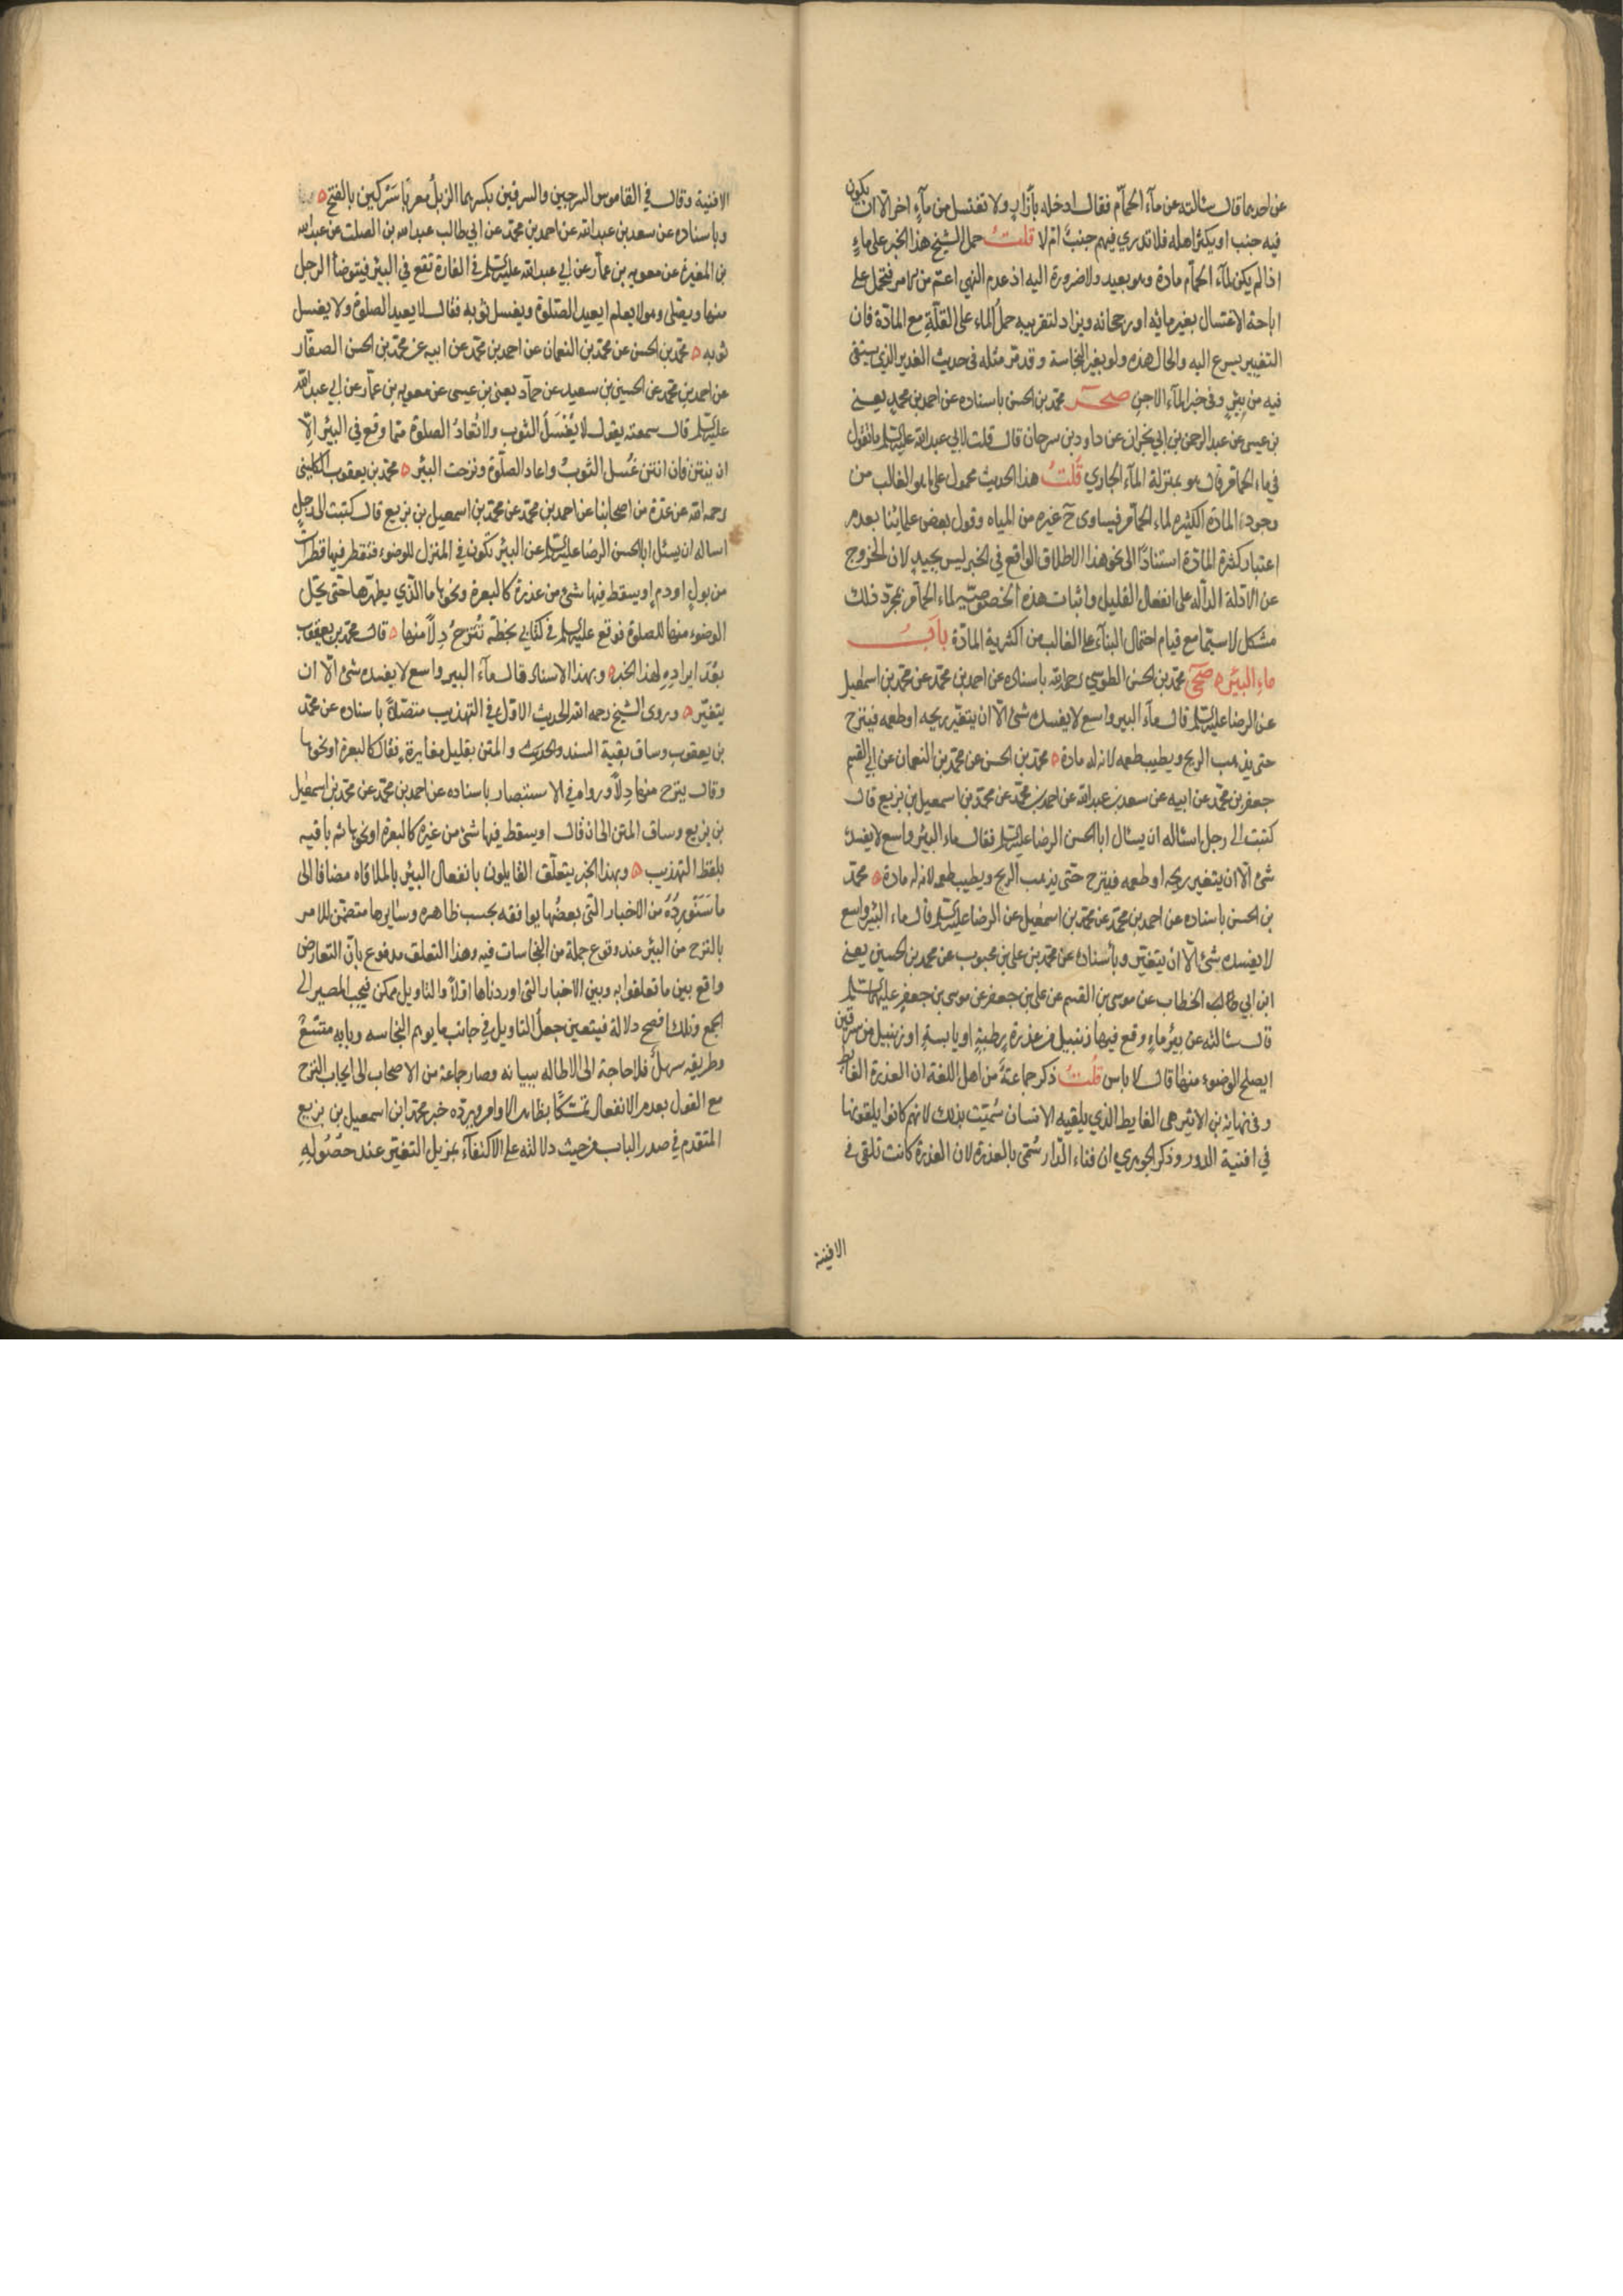 عن احدهما قال سئالته عن مآء الحمآم فقال ادخله بأزار ولا تغتسل من مآءٍ اخر الا ان يكون
فيه جنب او يكثر اهله فلا تدري فيهم جنبٌ ام لا قلتُ حمل الشيخ هذا الخبر على ماءٍ
اذا لم يكن لمآء الحمآم مادة وهو بعيد ولا ضرورة اليه اذ عدم النهي اعم من الامر فيحمل على
اباحة الاغتسال بغير مائه او رجحانه ويزاد لتقريبه حملُ الماء على القلّة مع المادّة فان
التغيير يسرع اليه والحال هذه ولو بغير النجاسة وقد مرّ مثله في حديث الغدير الذي يستقى
فيه من بئرٍ وفي خبر المآء الاجن صحر محمّد بن الحسن باسناده عن احمد بن محمدٍ يعني
بن عيسى عن عبد الرحمن بن ابي نجران عن داود بن سرحان قال قلت لابي عبد الله عليه السّلم ما تقول
في ماء الحمآم قال هو بمنزلة المآء الجاري قُلتُ هذا الحديث محمول على ما هو الغالب من
وجود المادّة الكثيرة لماء الحمآم فيساوى ح غيره من المياه وقول بعض علمائنا بعدم
اعتبار كثرة المآدّة استنادًا الى نحو هذا الاطلاق الواقع في الخبر ليس بجيدٍ لان الخروج
عن الادلة الدآلة على انفعال القليل واثبات هذه الخصوصيّة لماء الحمآم بمجرّد ذلك
مشكل لا سيّما مع قيام احتمال البناء على الغالب من اكثرية المادّة بابُ
ماء البئر ه صحى محمّد بن الحسن الطوسي رحمه الله باسناده عن احمد بن محمّد عن محمّد بن اسمعيل
عن الرضا عليه السّلم قال مآء البير واسع لا يفسده شئ الّا ان يتغيّر ريحه او طعمه فينزح
حتى يذهب الريح ويطيب طعمه لانه له مادة ه محمّد بن الحسن عن محمّد بن النعمان عن ابي القسم
جعفر بن محمّد عن ابيه عن سعد بن عبد الله عن احمد بن محمّد عن محمّد بن اسمعيل بن بزيع قال
كتبت الى رجل اسئاله ان يسئال ابا الحسن الرضا عليه السّلم فقال ماء البئر واسع لا يفسده
شئ الّا ان يتغير ريحه او طعمه فينزح حتّى يذهب الريح ويطيب طعمه لانه له مادة ه محمّد
بن الحسن باسناده عن احمد بن محمّد عن محمّد بن اسمعيل عن الرضا عليه السّلم قال ماء البئر واسع
لا يفسده شئ الّا ان يتغيّر وبأسناده عن محمّد بن علي بن محبوب عن محمد بن الحسين يعني
ابن ابي الخطاب عن موسى بن القسم عن علي بن جعفر عن موسى بن جعفرٍ عليهما السّلم
قال سئالته عن بئر ماءٍ وقع فيها زنبيل من عذرة رطبةٍ او يابسةٍ او زنبيل من سرقين
ايصلح الوضوء منها قال لا باس قلتُ ذكر جماعةٌ من اهل اللغة ان العذرة الغايط
وفي نهاية بن الاثير هي الغايط الذي يلقيه الانسان سُمّيت بذلك لانهم كانوا يلقونها
في افنية الدور وذكر الجوهري ان فناء الدّار سُمّى بالعذرة لان العذرة كانت تلقى في
الافنية
الافنية وقال في القاموس السرجين والسرقين بكسرهما الزبلُ معربا سَرْكين بالفتح ه
وباسناده عن سعد بن عبد الله عن احمد بن محمّد عن ابي طالب عبد الله بن الصلت عن عبد الله
بن المغيرة عن معويه بن عمآر عن ابي عبد الله عليه السّلم في الفارة تقع في البئر فيتوضأ الرجل
منها ويصلّى وهو لا يعلم ايعيد الصّلوة ويغسل ثوبه فقال لا يعيد الصلوة ولا يغسل
ثوبه ه محمّد بن الحسن عن محمّد بن النعمان عن احمد بن محمّد عن ابيه عن محمّد بن الحسن الصفّار
عن احمد بن محمّد عن الحسين بن سعيد عن حمآد يعني بن عيسى عن معويه بن عمآر عن ابي عبد الله
عليه السّلم قال سمعته يقول لا يُغْسَلُ الثوب ولا تُعادُ الصلوة ممّا وقع في البئر الّا
ان ينتن فان انتن غُسل الثوبُ واعاد الصلوة ونزحت البئر ه محمّد بن يعقوب الكلينى
رحمه الله عن عدّة من اصحابنا عن احمد بن محمّد عن محمّد بن اسمعيل بن بزيع قال كتبت الى رجلٍ
اساله ان يسئل ابا الحسن الرضا عليه السّلم عن البئر تكون في المنزل للوضوء فتقطر فيها قطرات
من بولٍ او دمٍ او يسقط فيها شئ من عذرة كالبعرة ونحوها ما الّذي يطهّرها حتّى يحّل
الوضوء منها للصلوة فوقع عليه السّلم في كتابي بخطّه تُنْزحُ دِلآً منها ه قال محمّد بن يعقوب
بَعْدَ ايرادِهِ لهذا الخبر ه وبهذا الاسناد قال مآء البير واسع لا يفسده شئ الّا ان
يتغيّر ه وروى الشيخ رحمه الله الحديث الاوّل في التهذيب متصلاً باسناده عن محمّد
بن يعقوب وساق بقية السند والحديث والمتن بقليل مغايرةٍ فقال كالبعرة او نحوها
وقال ينزح منها دِلآً ورواه في الاستبصار باسناده عن احمد بن محمّد عن محمّد بن اسمعيل
بن بزيع وساق المتن الى ان قال او يسقط فيها شئ من غيره كالبعرة او نحوها ثم باقيه
بلفظ التهذيب ه وبهذا الخبر يتعلّق القايلون بانفعال البئر بالملاقاه مضافا الى
ما سَنُورِدُهُ من الاخبار التي بعضُها يوافقه بحسب ظاهره وسايرها متضمّن للامر
بالنزح من البئر عند وقوع جملة من النجاسات فيه وهذا التعلق مدفوع بانّ التعارض
واقع بين ما تعلقوا به وبين الاخبار التي اوردناها اوّلاً والتاويل ممكن فيجب المصير الى
الجمع وتلك اوضح دلالة فيتعين جعلُ التاويل في جانب ما يوهم النجاسه وبابه متسّعٌ
وطريقه سهلٌ فلا حاجة الى الاطاله ببيانه وصار جماعة من الاصحاب الى ايجاب النزح
مع القول بعدم الانفعال تمسّكًا بظاهر الاوامر ويردّه خبر محمّد ابن اسمعيل بن بزيع
المتقدم في صدر الباب من حيث دلالته على الاكتفآء بمزيل التغيّر عند حصُولِهِ